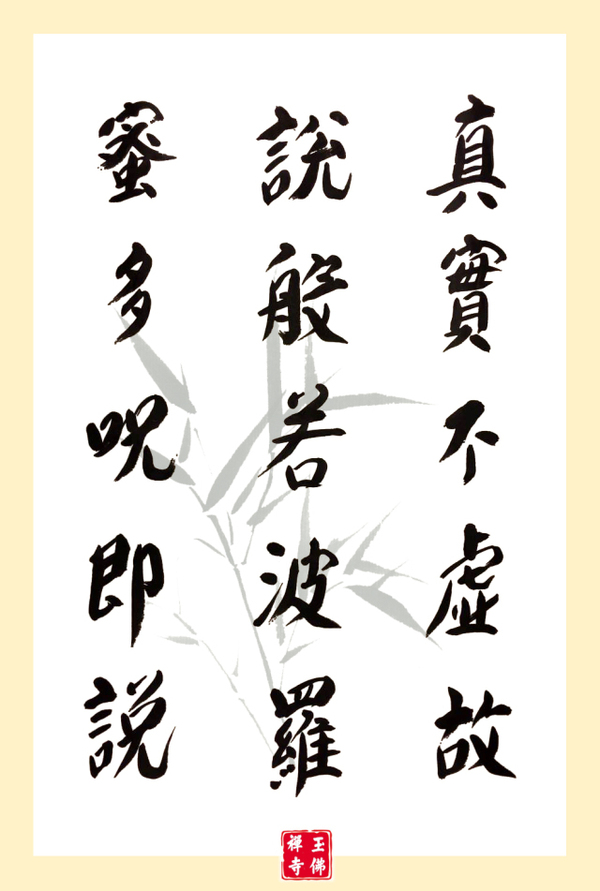 真實不虛故
說般若波羅
蜜多呪即說
玉佛
禅寺